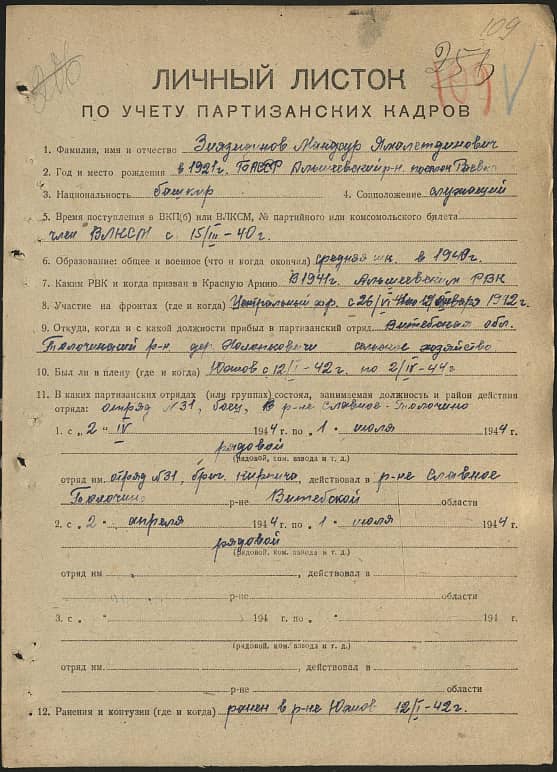 109
206
251
109 V
ЛИЧНЫЙ ЛИСТОК
ПО УЧЕТУ ПАРТИЗАНСКИХ КАДРОВ
1. Фамилия, имя и отчество Зиязтинов Мансур Ямалетдинович
2. Год и место рождения в 1921г. БАССР Альшеевский р-н. поселок Раевка
3. Национальность башкир 4. Соцположение служащий
5. Время поступления в ВКП(б) или ВЛКСМ, № партийного или комсомольского билета
член ВЛКСМ с 15/III-40г.
6. Образование: общее и военное (что и когда окончил) средная шк. в 1940г.
7. Каким РВК и когда призван в Красную Армию В 1941г. Альшеевским РВК
8. Участие на фронтах (где и когда) Центральный фр. с 26/VI по 12 января 1942г.
9. Откуда, когда и с какой должности прибыл в партизанский отряд Витебская обл.
Толочинский р-н дер. сельское хозяйство
10. Был ли в плену (где и когда) Юхнов с 12/I-42г. по 2/IV-44г
11. В каких партизанских отрядах (или группах) состоял, занимаемая должность и район действия
отряда: отряд №31, боец, в р-не Славное-Толочино
1. с „ 2 " IV 1944 г. по „ 1 " июля 1944 г.
рядовой
(рядовой, ком. взвода и т. д.)
отряд им. отряд №31, бриг. Кирпича, действовал в р-не Славное
Толочино р-не Витебской области
2. с „ 2 " апреля 1944 г. по „ 1 " июля 1944 г.
рядовой
(рядовой, ком. взвода и т. д.)
отряд им , действовал в
р-не области
3. с „ " 194 г. по „ " 194 г.
(рядовой, ком. взвода и т. д.)
отряд им. , действовал в
р-не области
12. Ранения и контузии (где и когда) ранен в р-не Юхнов 12/I-42г.